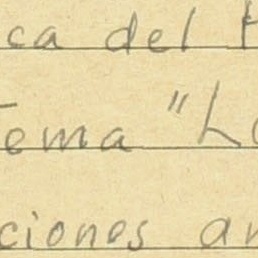 ca del
Tema "L
ciones an